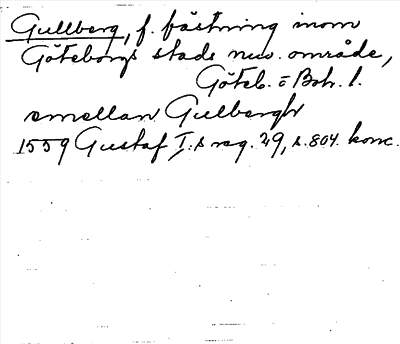 Gullberg, f. fästning inom
Göteborgs stads nuv. område,
Göteb. o Boh. l.
emellan Gulbergh
1559 Gustaf I:s reg. 29, s. 804. konc.